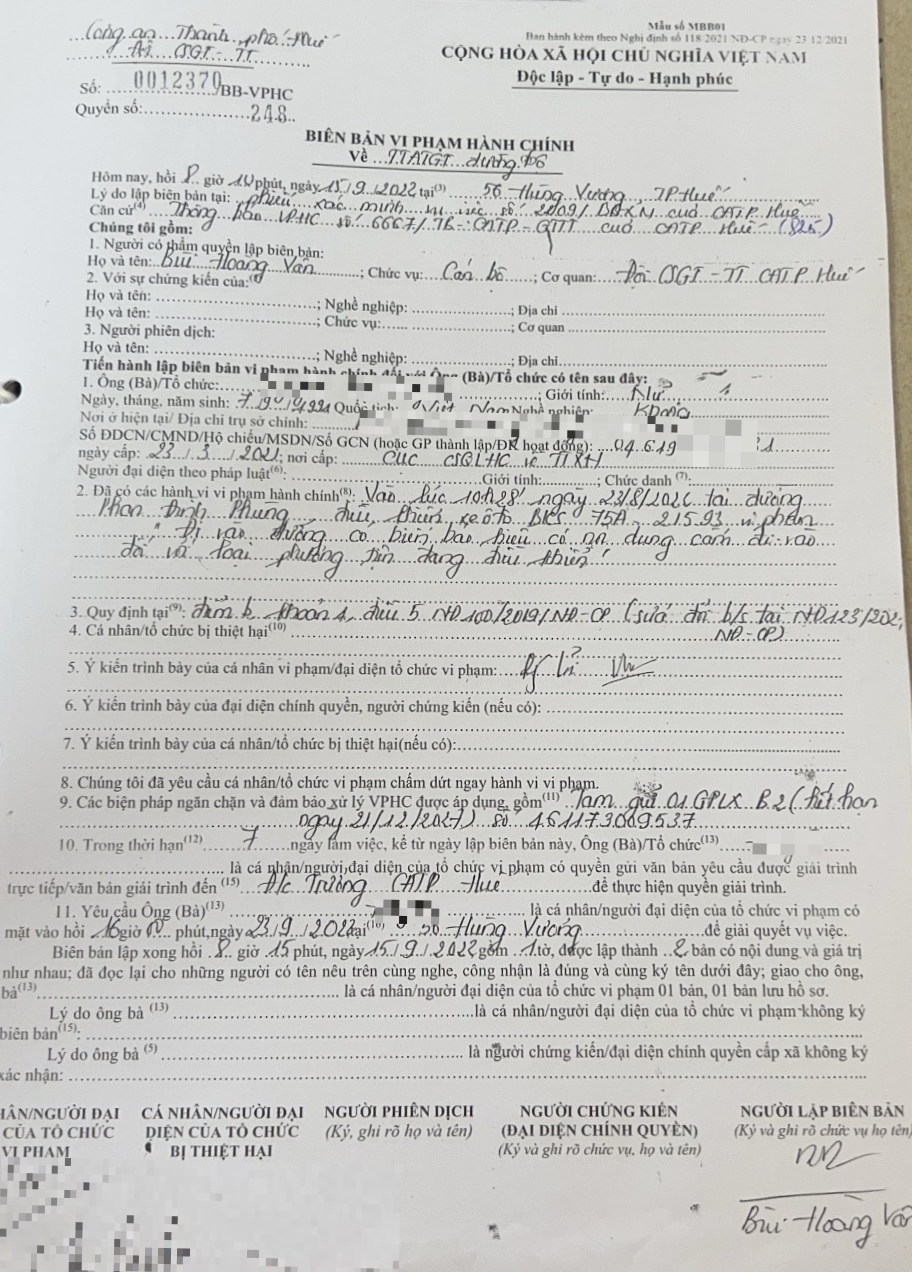 Công an Thành phố Huế
Đội CSGT - TT
Mẫu số MBB01
Ban hành kèm theo Nghị định số 118/2021 NĐ-CP ngày 23-12-2021
CỘNG HÒA XÃ HỘI CHỦ NGHĨA VIỆT NAM
Độc lập - Tự do - Hạnh phúc
Số: 0012370 BB-VPHC
Quyển số: 248
BIÊN BẢN VI PHẠM HÀNH CHÍNH
Về TTATGT đường bộ
Hôm nay, hồi 8 giờ 10 phút, ngày 15/9/2022 tại(3) 56 Hùng Vương, TP Huế
Lý do lập biên bản tại: phiếu xác minh vụ việc số 2009/ của CATP Huế
Căn cứ(4) Thông báo VPHC số 6667/TB-CATP-GTTT của CATP Huế (825)
Chúng tôi gồm:
1. Người có thẩm quyền lập biên bản:
Họ và tên: Bùi Hoàng Vân; Chức vụ: Cán bộ; Cơ quan: Đội CSGT - TT CATP Huế
2. Với sự chứng kiến của:
Họ và tên: ; Nghề nghiệp: ; Địa chỉ
Họ và tên: ; Chức vụ: ; Cơ quan
3. Người phiên dịch:
Họ và tên: ; Nghề nghiệp: ; Địa chỉ
Tiến hành lập biên bản vi phạm hành chính đối với Ông (Bà)/Tổ chức có tên sau đây:
1. Ông (Bà)/Tổ chức: ; Giới tính: Nữ
Ngày, tháng, năm sinh: Quốc tịch: Việt Nam Nghề nghiệp: KDMB
Nơi ở hiện tại/ Địa chỉ trụ sở chính:
Số ĐDCN/CMND/Hộ chiếu/MSDN/Số GCN (hoặc GP thành lập/ĐK hoạt động): 04619 1
ngày cấp: 23/3/2021; nơi cấp: CỤC CSQLHC về TTXH
Người đại diện theo pháp luật(6): Giới tính: ; Chức danh (7):
2. Đã có các hành vi vi phạm hành chính(8): Vào lúc 10h28' ngày 23/8/2022 tại đường
Phan Đình Phùng, điều khiển xe ô tô BKS 75A-215.93 vi phạm
": Đi vào đường có biển báo hiệu có nội dung cấm đi vào
đối với loại phương tiện đang điều khiển"
3. Quy định tại(9): điểm b khoản 4 điều 5 NĐ 100/2019/NĐ-CP (sửa đổi b/s tại NĐ 123/202
NĐ-CP)
4. Cá nhân/tổ chức bị thiệt hại(10)
5. Ý kiến trình bày của cá nhân vi phạm/đại diện tổ chức vi phạm:
6. Ý kiến trình bày của đại diện chính quyền, người chứng kiến (nếu có):
7. Ý kiến trình bày của cá nhân/tổ chức bị thiệt hại(nếu có):
8. Chúng tôi đã yêu cầu cá nhân/tổ chức vi phạm chấm dứt ngay hành vi vi phạm.
9. Các biện pháp ngăn chặn và đảm bảo xử lý VPHC được áp dụng, gồm(11) Tạm giữ 01 GPLX B2 (hết hạn
ngày 21/12/2027) số 461173009537
10. Trong thời hạn(12) 7 ngày làm việc, kể từ ngày lập biên bản này, Ông (Bà)/Tổ chức(13)
là cá nhân/người đại diện của tổ chức vi phạm có quyền gửi văn bản yêu cầu được giải trình
trực tiếp/văn bản giải trình đến (15) Đ/c Trưởng CATP Huế để thực hiện quyền giải trình.
11. Yêu cầu Ông (Bà)(13) là cá nhân/người đại diện của tổ chức vi phạm có
mặt vào hồi 16 giờ phút, ngày 23/9/2022 tại(16) 56 Hùng Vương để giải quyết vụ việc.
Biên bản lập xong hồi 8 giờ 15 phút, ngày 15/9/2022 gồm 1 tờ, được lập thành 2 bản có nội dung và giá trị
như nhau; đã đọc lại cho những người có tên nêu trên cùng nghe, công nhận là đúng và cùng ký tên dưới đây; giao cho ông,
bà(13) là cá nhân/người đại diện của tổ chức vi phạm 01 bản, 01 bản lưu hồ sơ.
Lý do ông bà (13) là cá nhân/người đại diện của tổ chức vi phạm không ký
biên bản(15):
Lý do ông bà (5) là người chứng kiến/đại diện chính quyền cấp xã không ký
xác nhận:
HÂN/NGƯỜI ĐẠI
CỦA TỔ CHỨC
VI PHẠM
CÁ NHÂN/NGƯỜI ĐẠI
DIỆN CỦA TỔ CHỨC
BỊ THIỆT HẠI
NGƯỜI PHIÊN DỊCH
(Ký, ghi rõ họ và tên)
NGƯỜI CHỨNG KIẾN
(ĐẠI DIỆN CHÍNH QUYỀN)
(Ký và ghi rõ chức vụ, họ và tên)
NGƯỜI LẬP BIÊN BẢN
(Ký và ghi rõ chức vụ họ tên)
Bùi Hoàng Vân